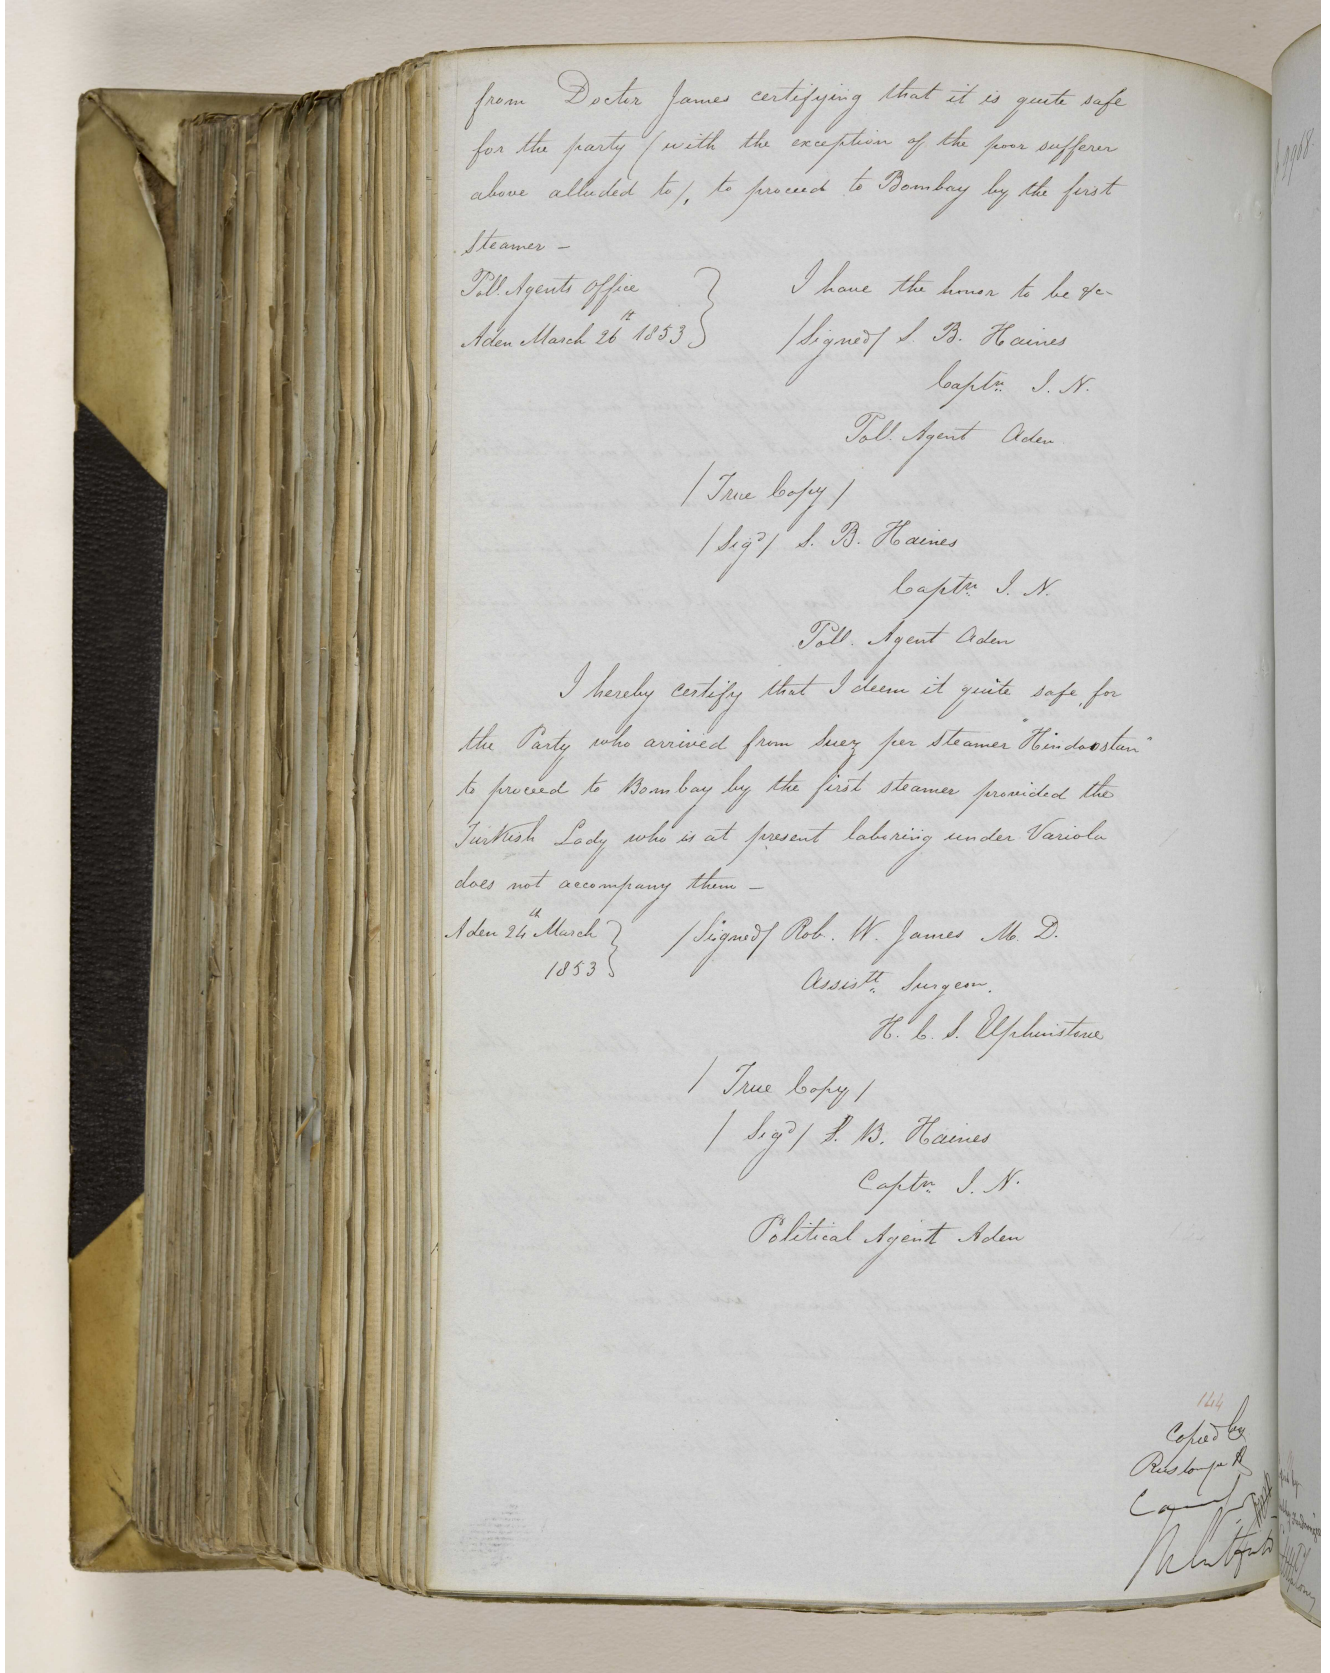 from Doctor James certifying that it is quite safe
for the party / with the exception of the poor sufferer
above alluded to /, to proceed to Bombay by the first
Steamer –
Poll. Agents Office
Aden March 26th 1853
I have the honor to be &c
/Signed/ S. B. Haines
Captn. I. N.
Poll. Agent Aden
/ True Copy /
/ Sigd / S. B. Haines
Captn. I. N.
Poll. Agent Aden
I hereby certify that I deem it quite safe, for
the Party who arrived from Suez per steamer "Hindoostan"
to proceed to Bombay by the first steamer provided the
Turkish Lady who is at present laboring under Variola
does not accompany them –
Aden 24th March
1853
/Signed/ Rob. W. James M. D.
Assistt. Surgeon.
H. C. S. Elphinstone
/ True Copy /
/ Sigd / S. B. Haines
Captn. I. N.
Political Agent Aden
144
Copied by